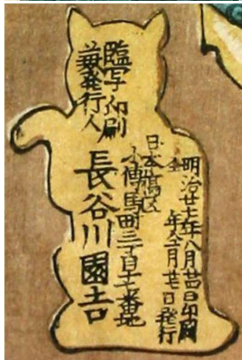 明治廿七年八月廿四日印刷
仝年仝月廿七日発行
日本橋区
小傳馬町三丁目十七番地
臨写印刷
兼発行人
長谷川園吉